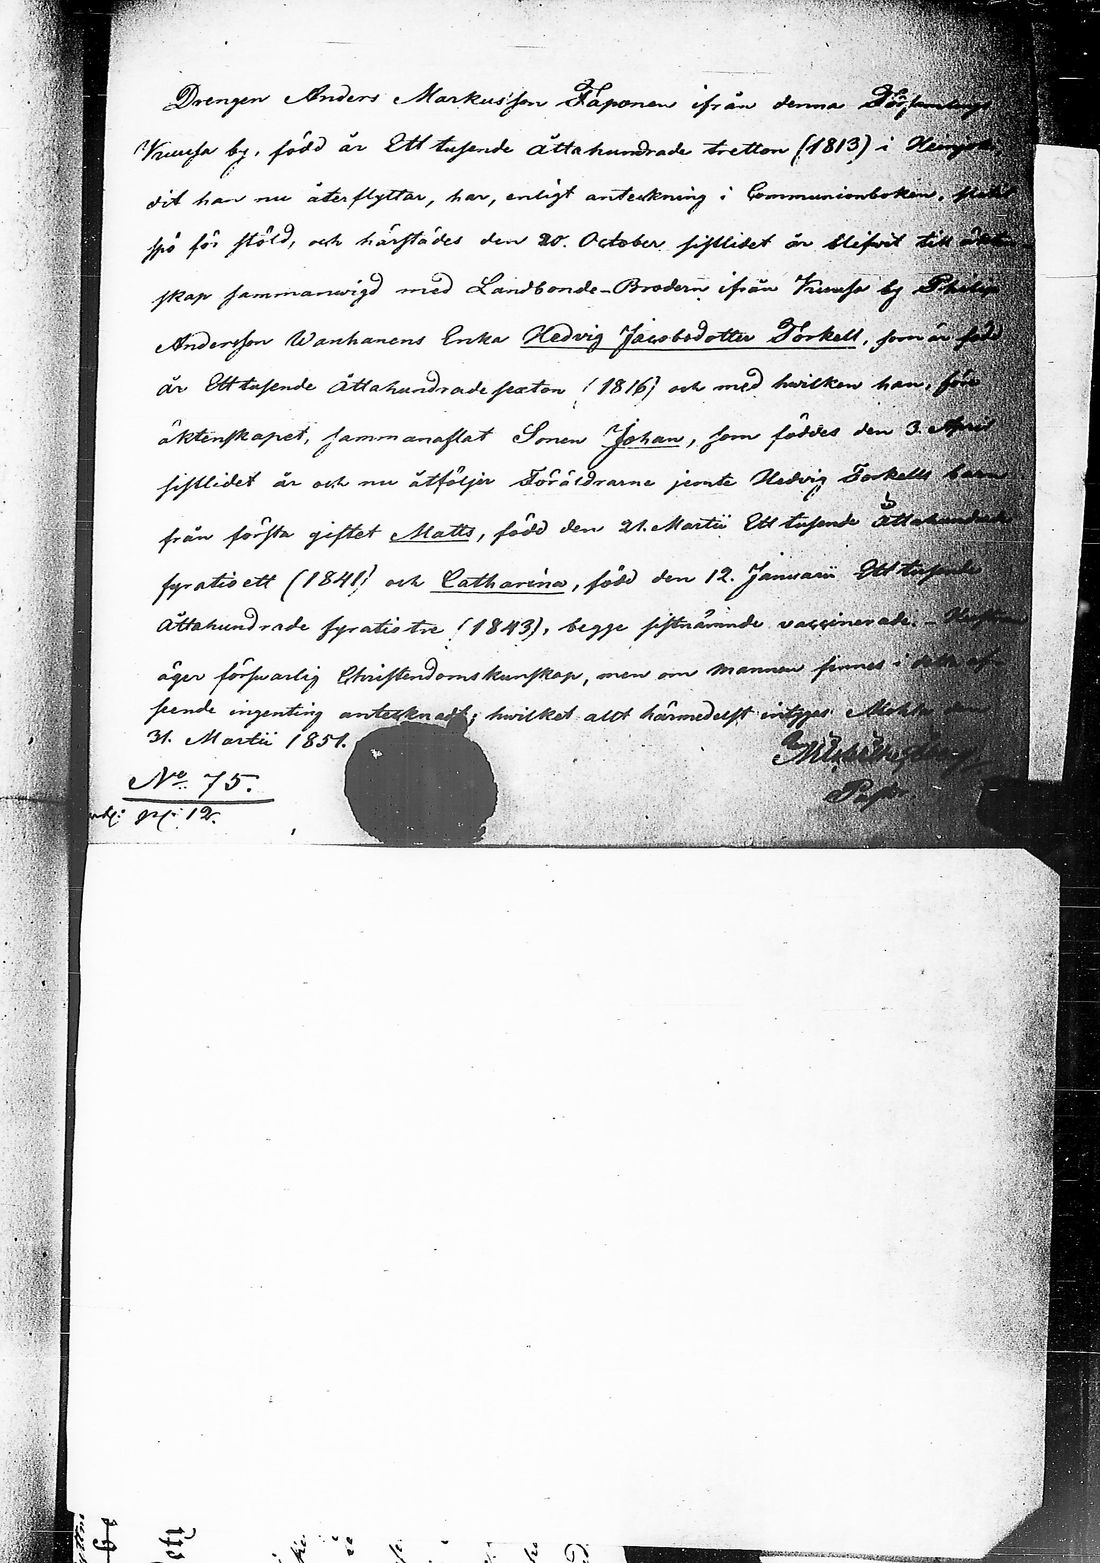 Drengen Anders Markusson Taponen ifrån denna Församlings
Kuusa by, född år Ett tusende åttahundrade tretton (1813) i Heinjoki,
dit han nu återflyttar, har, enligt anteckning i Communionboken,
spö för stöld, och härstädes den 20. October sistlidet år blifvit till äkten-
skap sammanwigd med Landbonde-Brodern ifrån Kuusa by Philip
Andersson Wanhanens Enka Hedvig Jacobsdotter Torkell, som är född
år Ett tusende åttahundrade sexton (1816) och med hwilken han, före
äktenskapet, sammanaflat Sonen Johan, som föddes den 3. April
sistlidet år och nu åtföljer Föräldrarne jemte Hedvig Torkells barn
från första giftet Matts, född den 21. Martii Ett tusende åttahundrade
fyratioett (1841) och Catharina, född den 12. Januarii Ett tusende
åttahundrade fyratiotre (1843), begge sistnämnde vaccinerade. - Hustrun
äger försvarlig Christendomskunskap, men om mannen finnes i detta af-
seende ingenting antecknadt; hwilket allt härmedelst intygas Mohla den
31. Martii 1851.
No. 75.
12.
Past